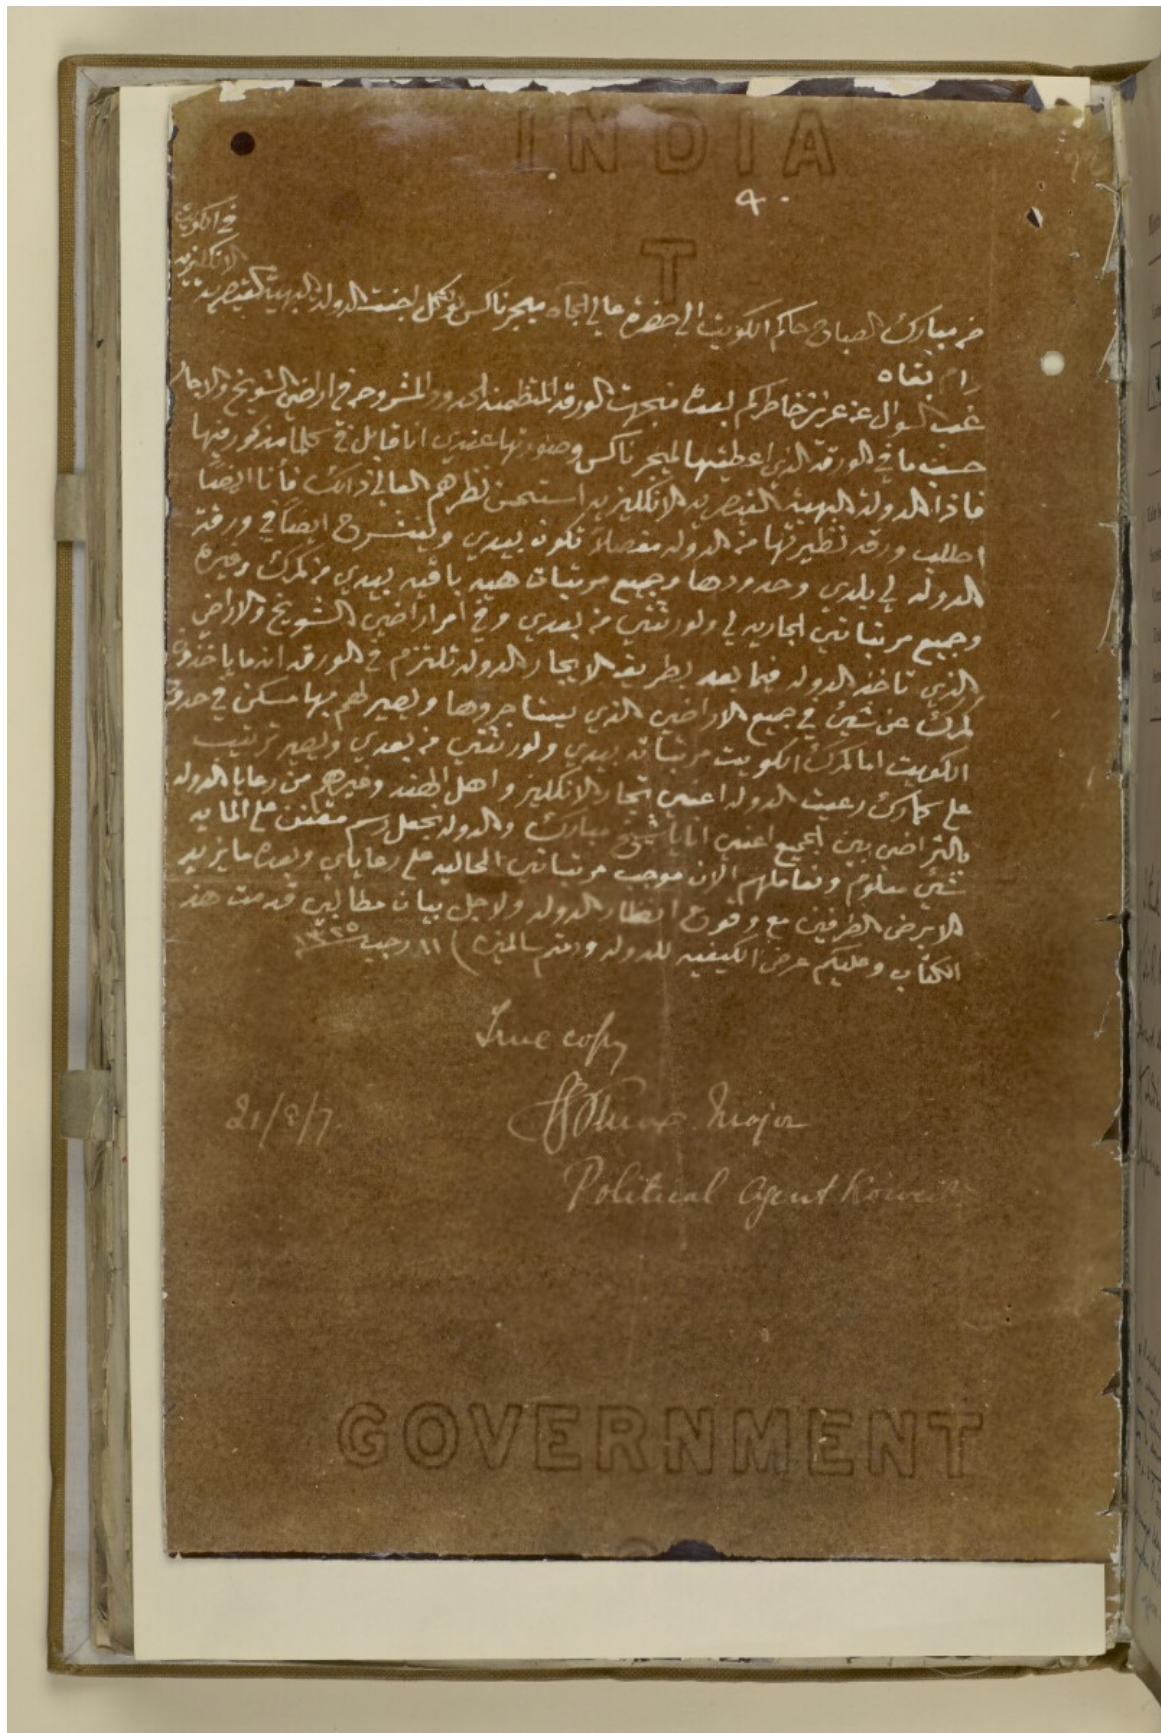 INDIA
٩٠
T
في الكويت
الانكليزيه
من مبارك الصباح حاكم الكويت الى حضرة عالي الجاه ميجر ناكس بولتكل اجنت الدولة البهية القيصرية
دام بقاه
غب السوال عن عزيز خاطركم بعده منجهت الورقه المتظمنه الحدود المشروحه في اراضي الشويخ والاجار
حسب ما في الورقه الذي اعطيتها لميجر ناكس وصورتها عندي انا قابل في كلما مذكور فيها
فاذا الدولة البهية القيصريه الانكليزيه استحسن نظرهم العالي ذالك فأنا ايضاً
اطلب ورقه نظيرتها من الدوله مفصلاً تكون بيدي وينشرح ايضاً في ورقة
الدوله لي بلدي وحدودها وجميع مرتباتي هيه باقيه بيدي من كمرك وغيره
وجميع مرتباتي الجاريه لي ولورثتي من بعدي وفي امر اراضي الشويخ والاراضي
الذي تاخذ الدوله فيما بعد بطريق الايجار الدوله تلتزم في الورقه انه ما ياخذون
كمرك عن شيئ في جميع الاراضي الذي يستاجروها ويصير لهم بها مسكن في حدود
الكويت اما كمرك الكويت مرتباته بيدي ولورثتي من بعدي ويصير ترتيب
على كمارك رعيت الدوله اعني تجار الانكليز واهل الهند وغيرهم من رعايا الدوله
بالتراضي بين الجميع اعني انا يا شيخ مبارك والدوله بجعل رسم مقنن على المايه
شيئ معلوم ونعاملهم الان موجب مرتباتي الحاليه على رعاياي وبعده ما يزيد
الا برضى الطرفين مع وقوع انظار الدوله ولاجل بيان مطالبي قدمت هذ
الكتاب وعليكم عرض الكيفيه للدوله ودمتم سالمين ١١ رجب ١٣٢٥
True copy
SGKnox Major
21/8/7
Political Agent Koweit
GOVERNMENT